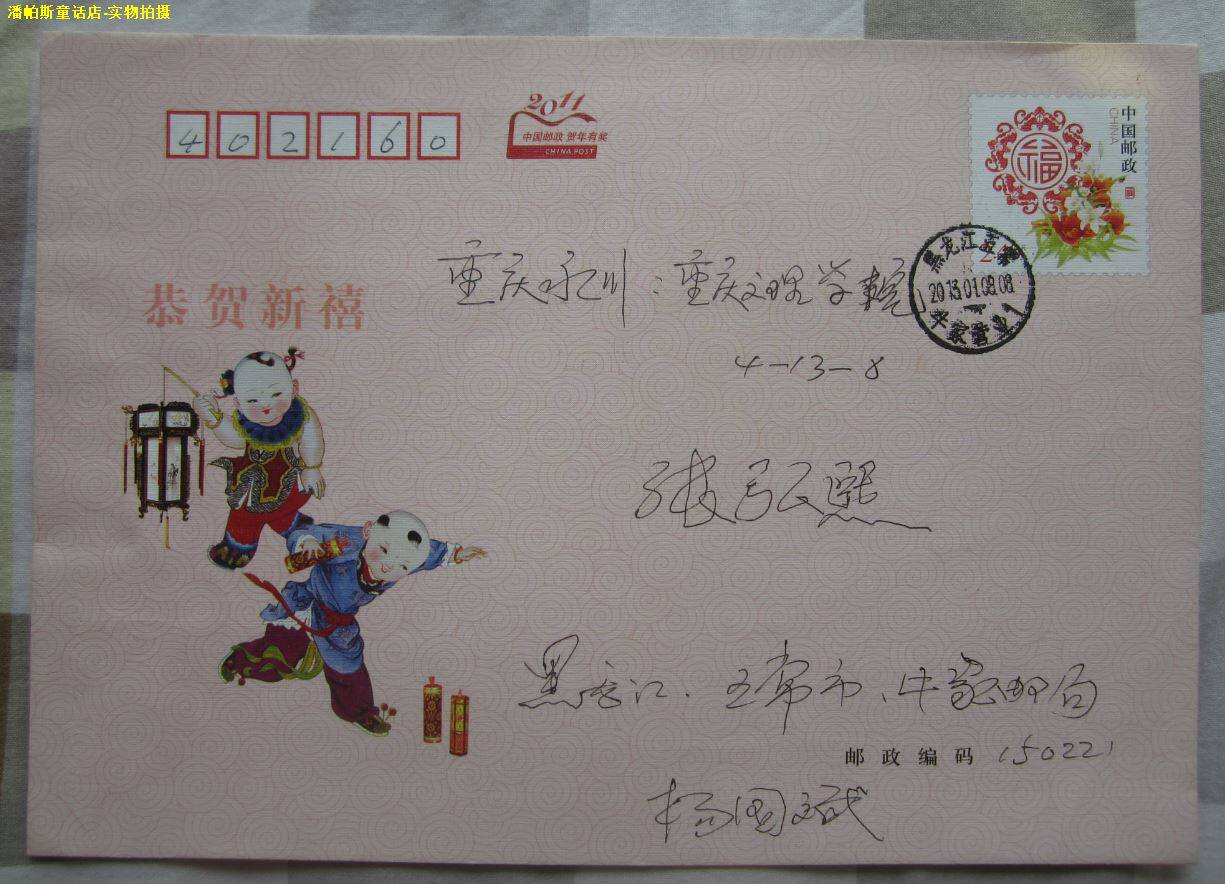 潘帕斯童话店-实物拍摄
402160
2011
中国邮政 贺年有奖
CHINA POST
中国邮政
CHINA
福
黑龙江五常
2013.01.08.08
牛家营业1
重庆永川:重庆文理学院
4-13-8
恭贺新禧
张弘熙
黑龙江.五常市、牛家邮局
邮政编码 150221
杨国斌